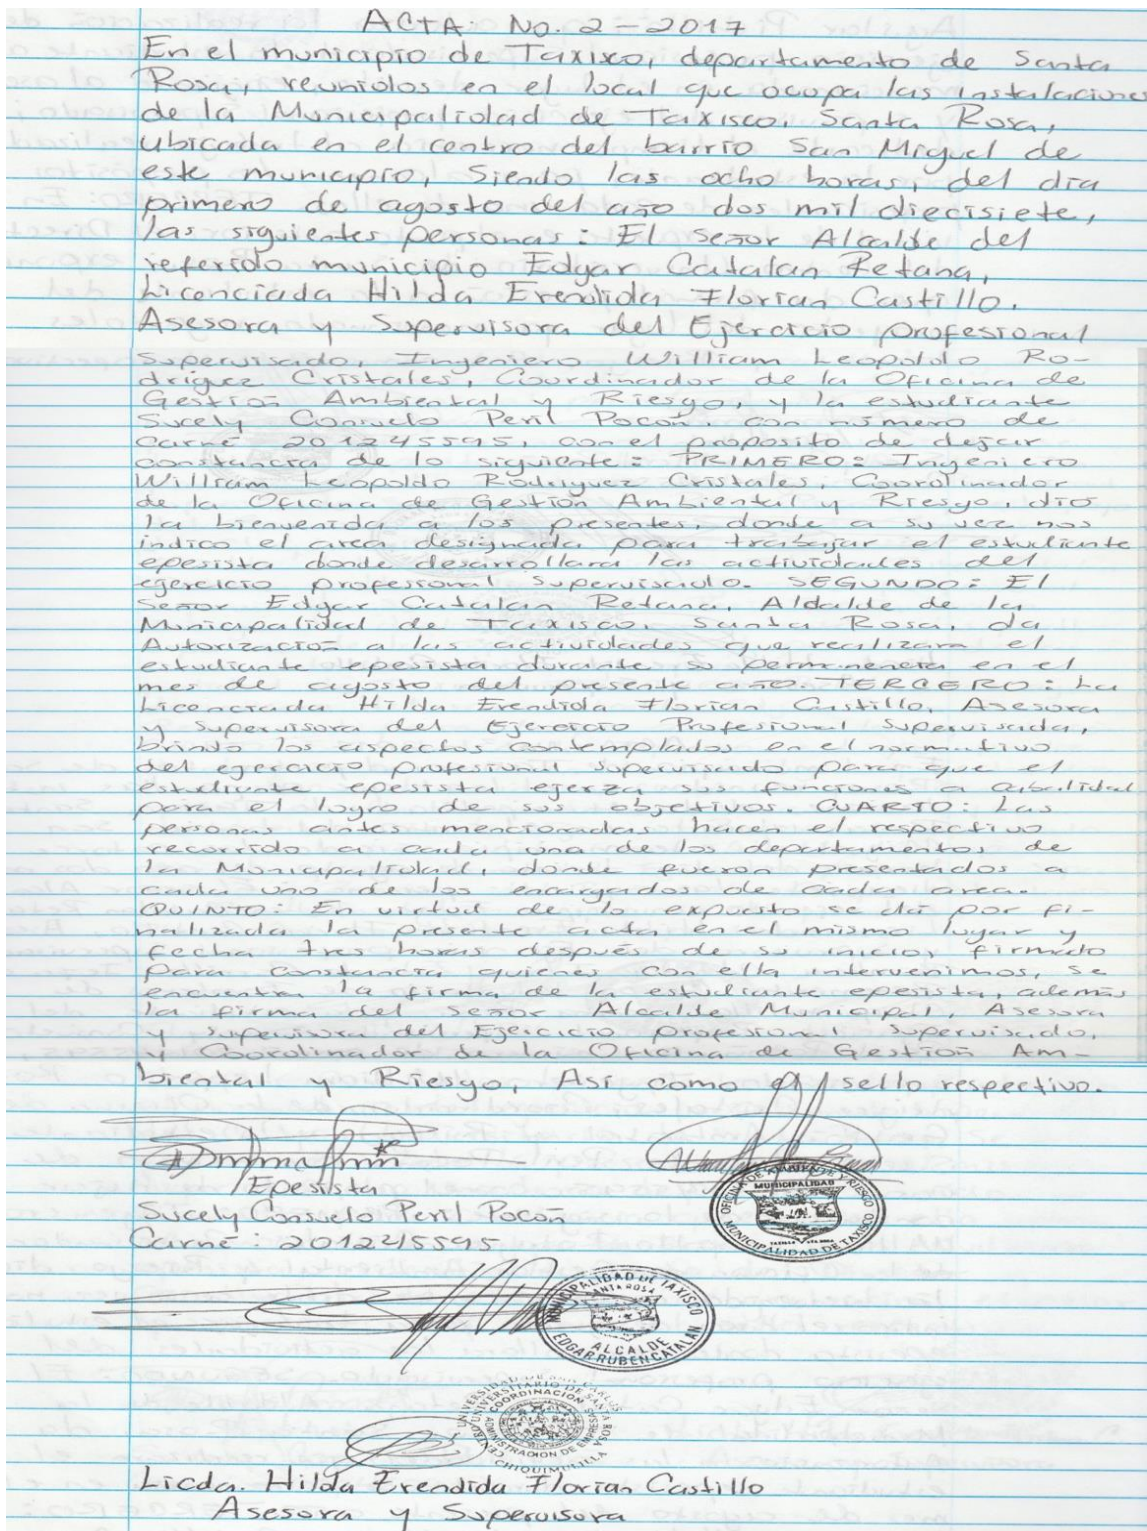 ACTA. No. 2-2017
En el municipio de Taxisco, departamento de Santa
Rosa, reunidos en el local que ocupa las instalaciones
de la Municipalidad de Taxisco. Santa Rosa,
ubicada en el centro del barrio San Miguel de
este municipio, Siendo las ocho horas, del día
primero de agosto del año dos mil diecisiete,
las siguientes personas: El señor Alcalde del
referido municipio Edgar Catalan Retana,
Licenciada Hilda Erendida Florian Castillo.
Asesora y Supervisora del Ejercicio profesional
Supervisado, Ingeniero William Leopoldo Ro-
driguez Cristales, Coordinador de la Oficina de
Gestión Ambiental y Riesgo, y la estudiante
Sucely Consuelo Peril Pocón, con número de
Carné 201245595, con el proposito de dejar
constancia de lo siguiente: PRIMERO: Ingeniero
William Leopoldo Rodriguez Cristales, Coordinador
de la Oficina de Gestión Ambiental y Riesgo, dió
la bienvenida a los presentes, donde a su vez nos
indico el area designada para trabajar el estudiante
epesista donde desarrollara las actividades del
ejercicio profesional Supervisado. SEGUNDO: El
Señor Edgar Catalan Retana, Aldalde de la
Municipalidad de Taxisco. Santa Rosa, da
Autorización a las actividades que realizara el
estudiante epesista durante su permanencia en el
mes de agosto del presente año. TERCERO: La
Licenciada Hilda Erendida Florian Castillo, Asesora
y Supervisora del Ejercicio Profesional Supervisada,
brindo los aspectos contemplados en el normativo
del ejercicio profesional supervisado para que el
estudiante epesista ejerza sus funciones a cabalidad
para el logro de sus objetivos. CUARTO: Las
personas antes mencionadas hacen el respectivo
recorrido a cada una de los departamentos de
la Municipalidad, donde fueron presentados a
cada uno de los encargados de cada area.
QUINTO: En virtud de lo expuesto se dá por fi-
nalizada la presente acta en el mismo lugar y
fecha tres horas después de su inicio, firmado
para constancia quienes con ella intervenimos, se
encuentra la firma de la estudiante epesista, además
la firma del señor Alcalde Municipal, Asesora
y supervisora del Ejercicio profesional Supervisado,
y Coordinador de la Oficina de Gestión Am-
biental y Riesgo, Así como el sello respectivo.
Epesista
OFICINA DE AMBIENTE Y RIESGO
MUNICIPALIDAD
MUNICIPALIDAD DE TAXISCO
Sucely Consuelo Peril Pocón
Carné: 201245595
MUNICIPALIDAD DE TAXISCO
SANTA ROSA
ALCALDE
EDGAR RUBEN CATALAN
UNIVERSIDAD DE SAN CARLOS
CENTRO UNIVERSITARIO DE SANTA ROSA
COORDINACION
ADMINISTRACION DE EMPRESAS
CHIQUIMULILLA
Licda. Hilda Erendida Florian Castillo
Asesora y Supervisora